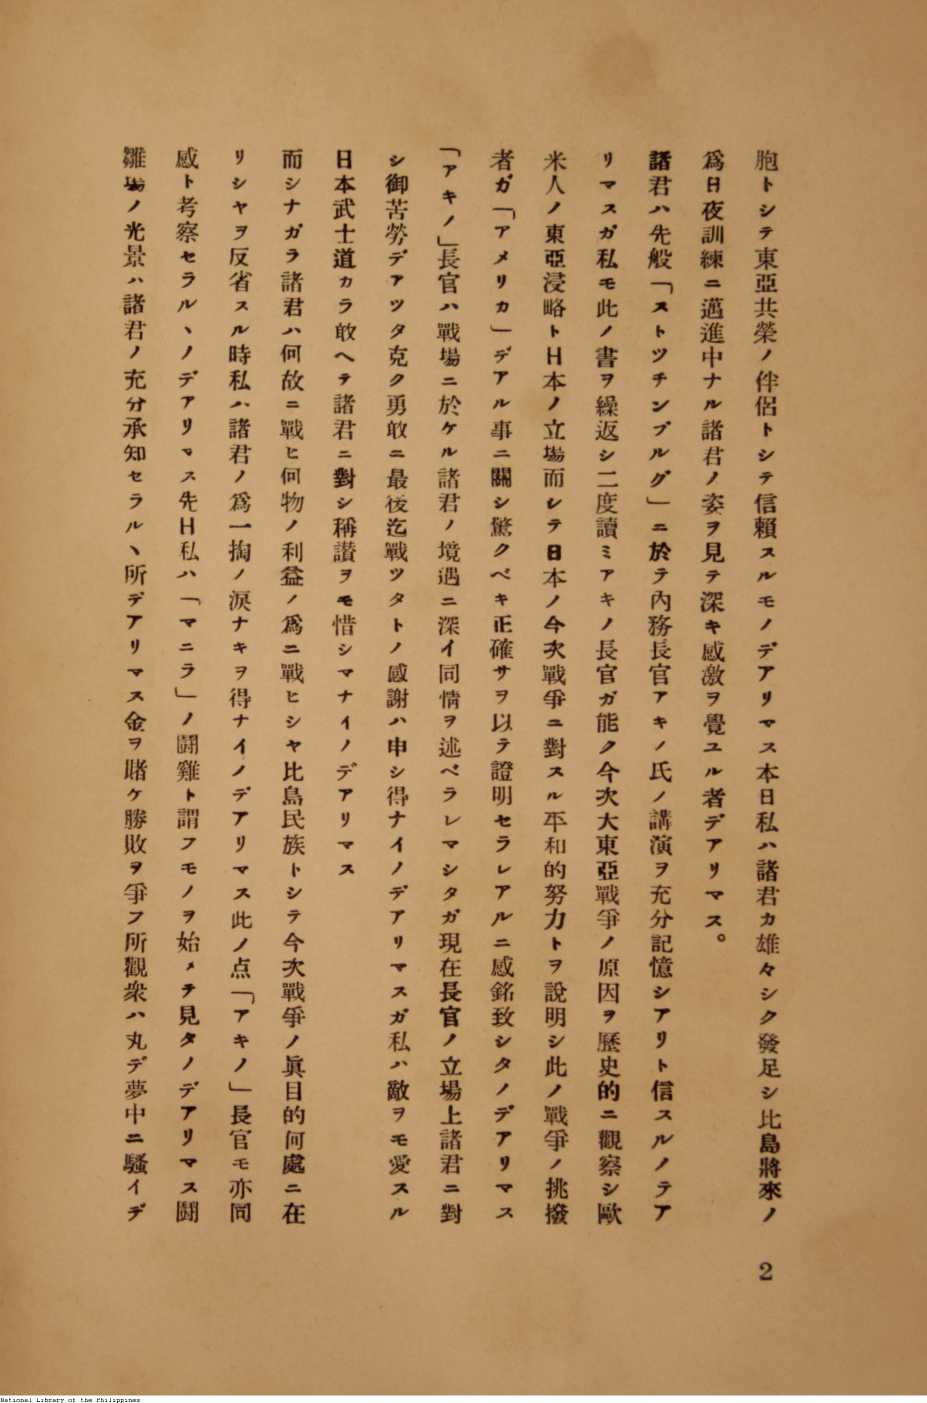 胞トシテ東亞共榮ノ伴侶トシテ信賴スルモノデアリマス本日私ハ諸君カ雄々シク發足シ比島將來ノ
爲日夜訓練ニ邁進中ナル諸君ノ姿ヲ見テ深キ感激ヲ覺ユル者デアリマス。
諸君ハ先般「ストツチンブルグ」ニ於テ內務長官アキノ氏ノ講演ヲ充分記憶シアリト信スルノテア
リマスガ私モ此ノ書ヲ繰返シ二度讀ミアキノ長官ガ能ク今次大東亞戰爭ノ原因ヲ歷史的ニ觀察シ歐
米人ノ東亞浸略ト日本ノ立場而シテ日本ノ今次戰爭ニ對スル平和的努力トヲ說明シ此ノ戰爭ノ挑撥
者ガ「アメリカ」デアル事ニ關シ驚クベキ正確サヲ以テ證明セラレアルニ感銘致シタノデアリマス
「アキノ」長官ハ戰場ニ於ケル諸君ノ境遇ニ深イ同情ヲ述ベラレマシタガ現在長官ノ立場上諸君ニ對
シ御苦勞デアツタ克ク勇敢ニ最後迄戰ツタトノ感謝ハ申シ得ナイノデアリマスガ私ハ敵ヲモ愛スル
日本武士道カラ敢ヘテ諸君ニ對シ稱讃ヲモ惜シマナイノデアリマス
而シナガラ諸君ハ何故ニ戰ヒ何物ノ利益ノ爲ニ戰ヒシヤ比島民族トシテ今次戰爭ノ眞目的何處ニ在
リシヤヲ反省スル時私ハ諸君ノ爲一掬ノ淚ナキヲ得ナイノデアリマス此ノ点「アキノ」長官モ亦同
感ト考察セラルヽノデアリマス先日私ハ「マニラ」ノ鬪雞ト謂フモノヲ始メテ見タノデアリマス鬪
雞場ノ光景ハ諸君ノ充分承知セラルヽ所デアリマス金ヲ賭ケ勝敗ヲ爭フ所觀衆ハ丸デ夢中ニ騷イデ
2
National Library of the Philippines